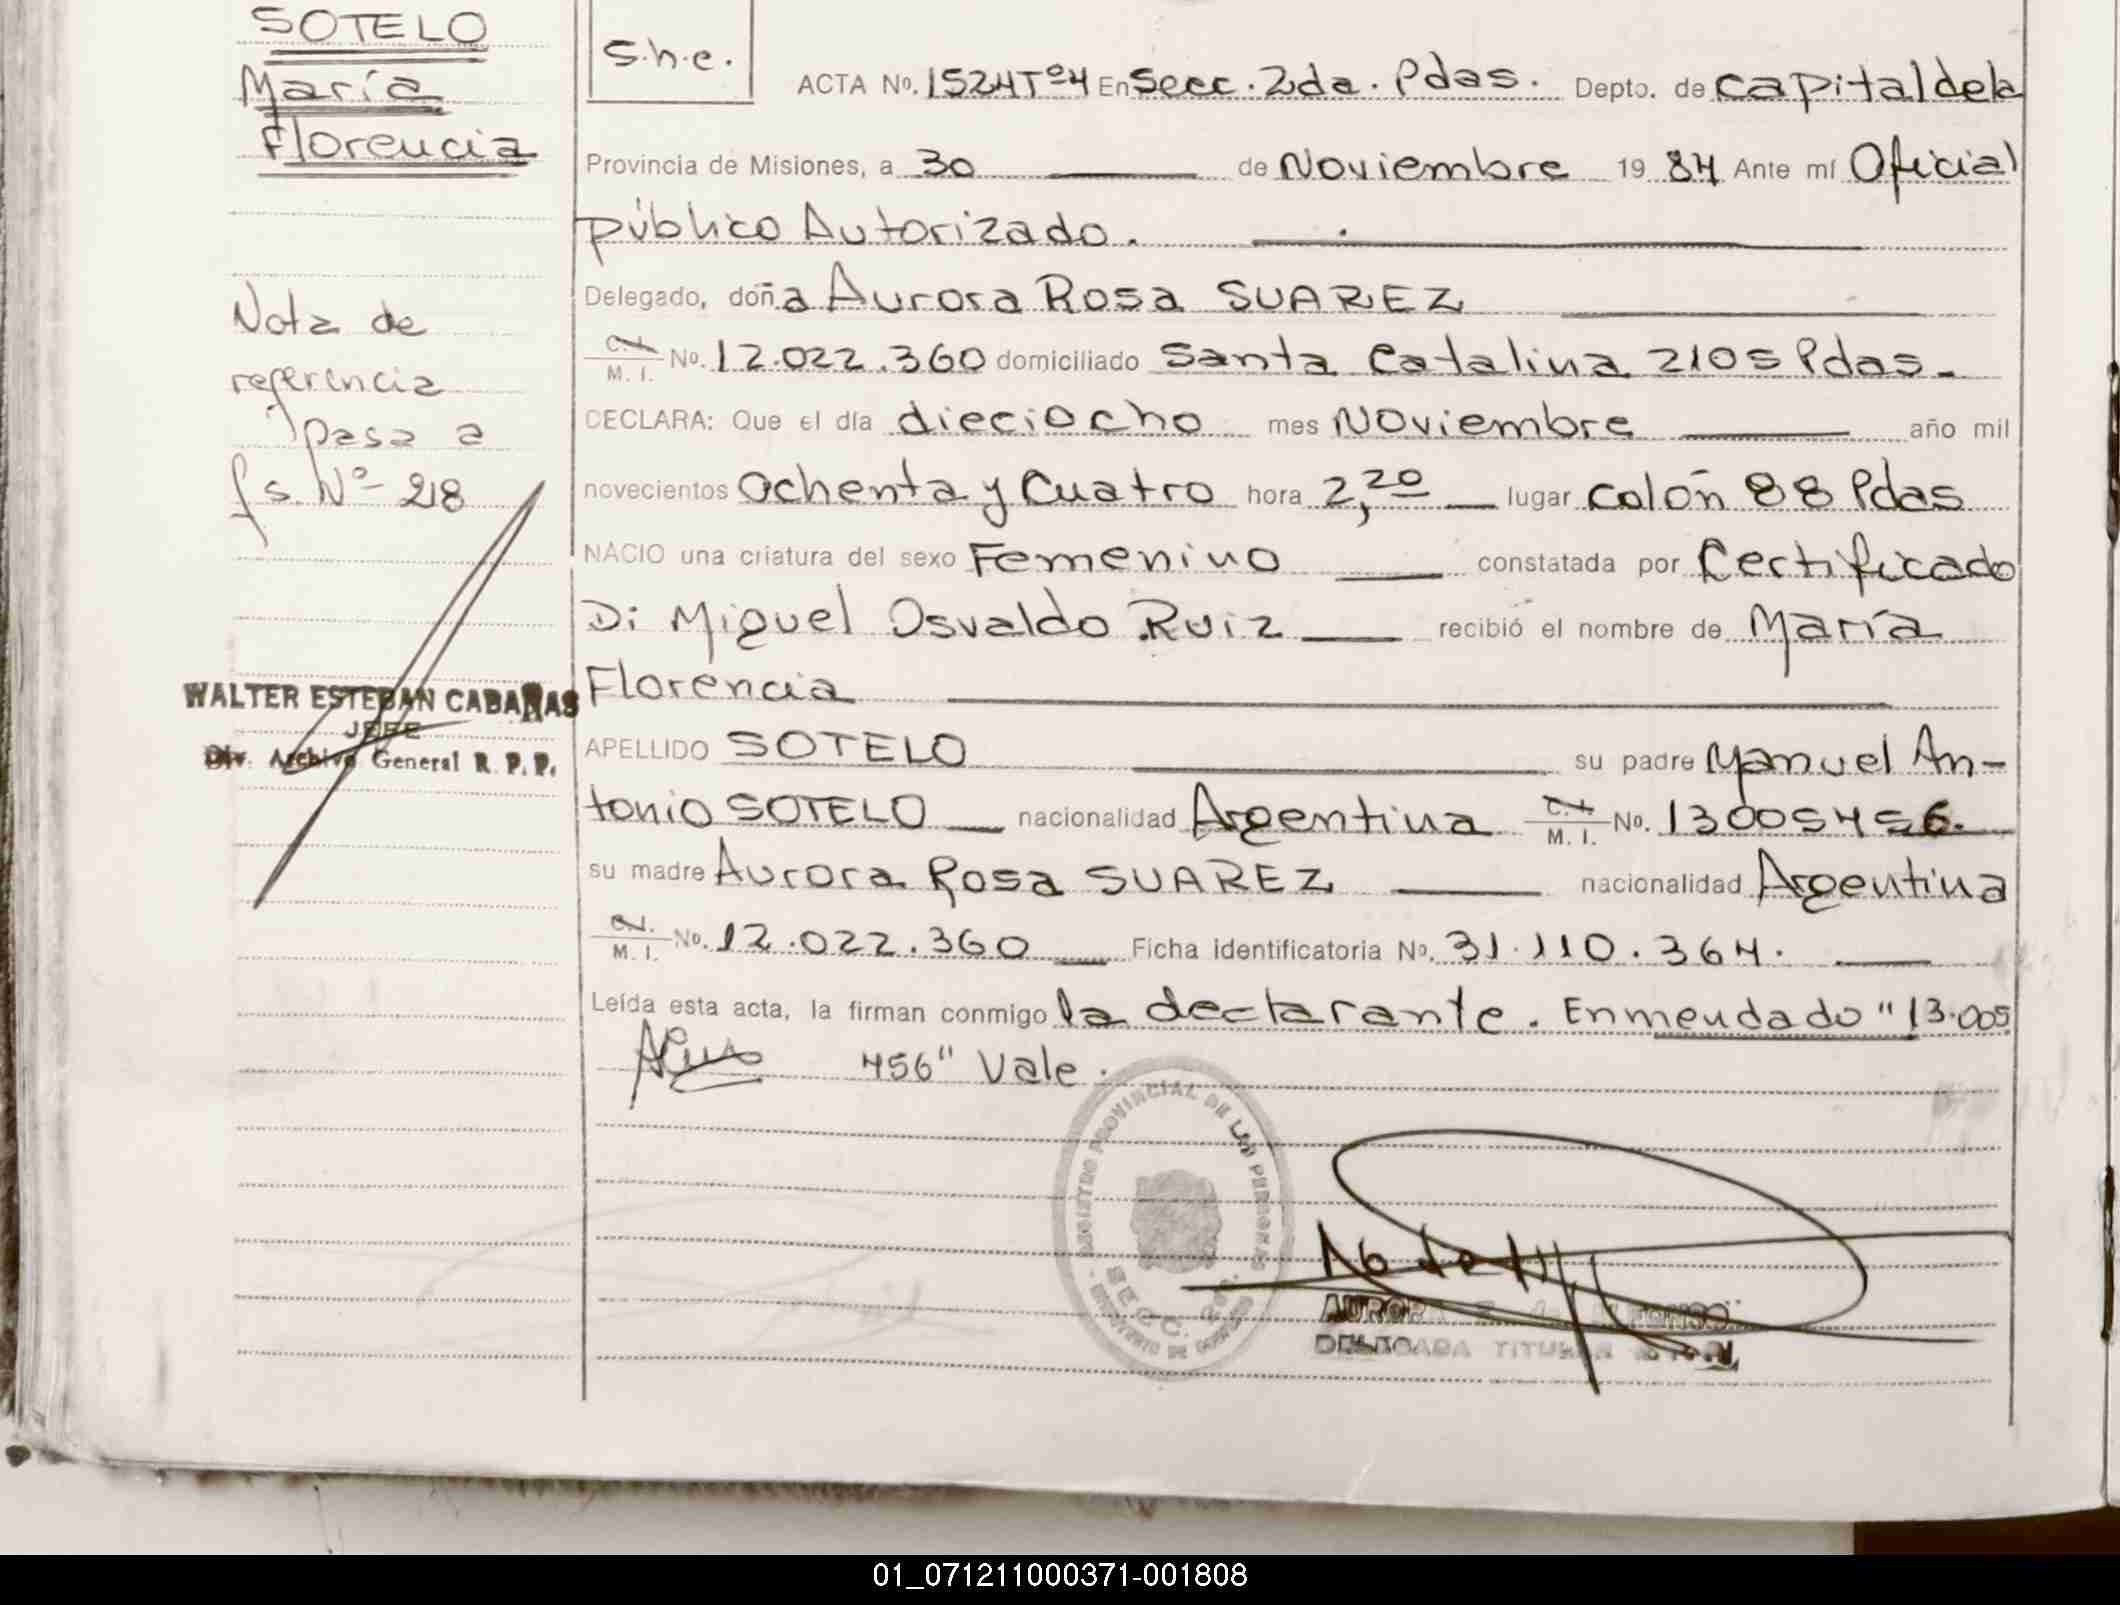 SOTELO
María
Florencia
Nota de
referencia
pasa a
fs. Nº 218
WALTER ESTEBAN CABAÑAS
JEFE
Div. Archivo General R. P. P.
S.h.e.
ACTA Nº. 1524Tº4 En Secc. 2da. Pdas. Depto. de Capital de la
Provincia de Misiones, a 30 de Noviembre 1984 Ante mí Oficial
público Autorizado.
Delegado, doña Aurora Rosa SUAREZ
C.I. M. I. Nº. 12.022.360 domiciliado Santa Catalina 2105 Pdas.
DECLARA: Que el día dieciocho mes Noviembre año mil
novecientos Ochenta y Cuatro hora 2,20 lugar Colón 88 Pdas
NACIO una criatura del sexo Femenino constatada por Certificado
Di Miguel Osvaldo Ruiz recibió el nombre de María
Florencia
APELLIDO SOTELO su padre Manuel An-
tonio SOTELO nacionalidad Argentina C.I. M. I. Nº. 13005456.
su madre Aurora Rosa SUAREZ nacionalidad Argentina
C.I. M. I. Nº. 12.022.360 Ficha identificatoria Nº. 31.110.364.
Leída esta acta, la firman conmigo la declarante. Enmendado "13.005
456" Vale.
REGISTRO PROVINCIAL DE LAS PERSONAS
SECC.
AURORA de ALFONSO
DELEGADA TITULAR
01_071211000371-001808